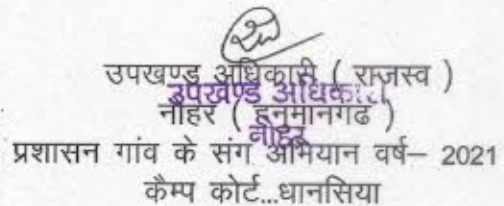 उपखण्ड अधिकारी ( राजस्व )
उपखण्ड अधिकारी
नौहर ( हनुमानगढ )
नौहर
प्रशासन गांव के संग अभियान वर्ष– 2021
कैम्प कोर्ट...धानसिया